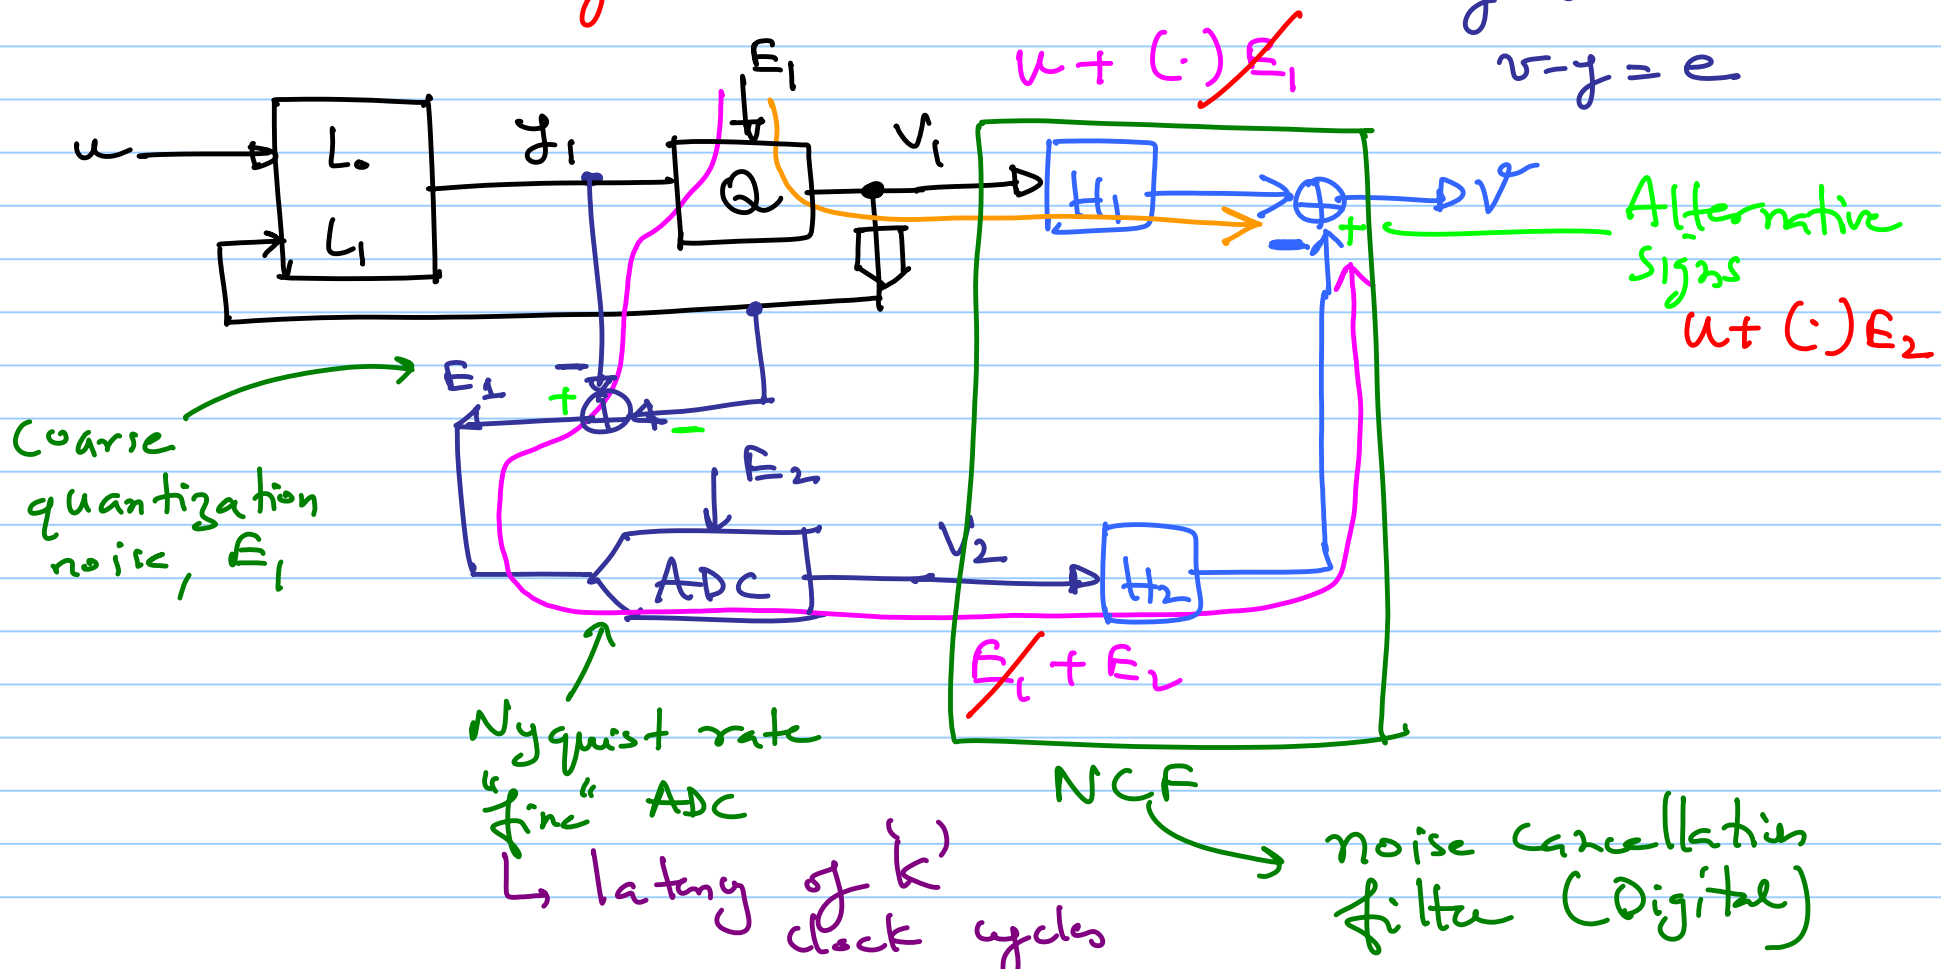 E₁
u + (·) E₁
v - y = e
u
L₀
y₁
Q
V₁
H₁
+
V
L₁
-
+
Alternative
signs
u + (·) E₂
E₁
-
+
+
-
Coarse
quantization
noise, E₁
E₂
ADC
V₂
H₂
E₁ + E₂
Nyquist rate
"fine" ADC
NCF
latency of (K)
clock cycles
noise cancellation
filter (Digital)